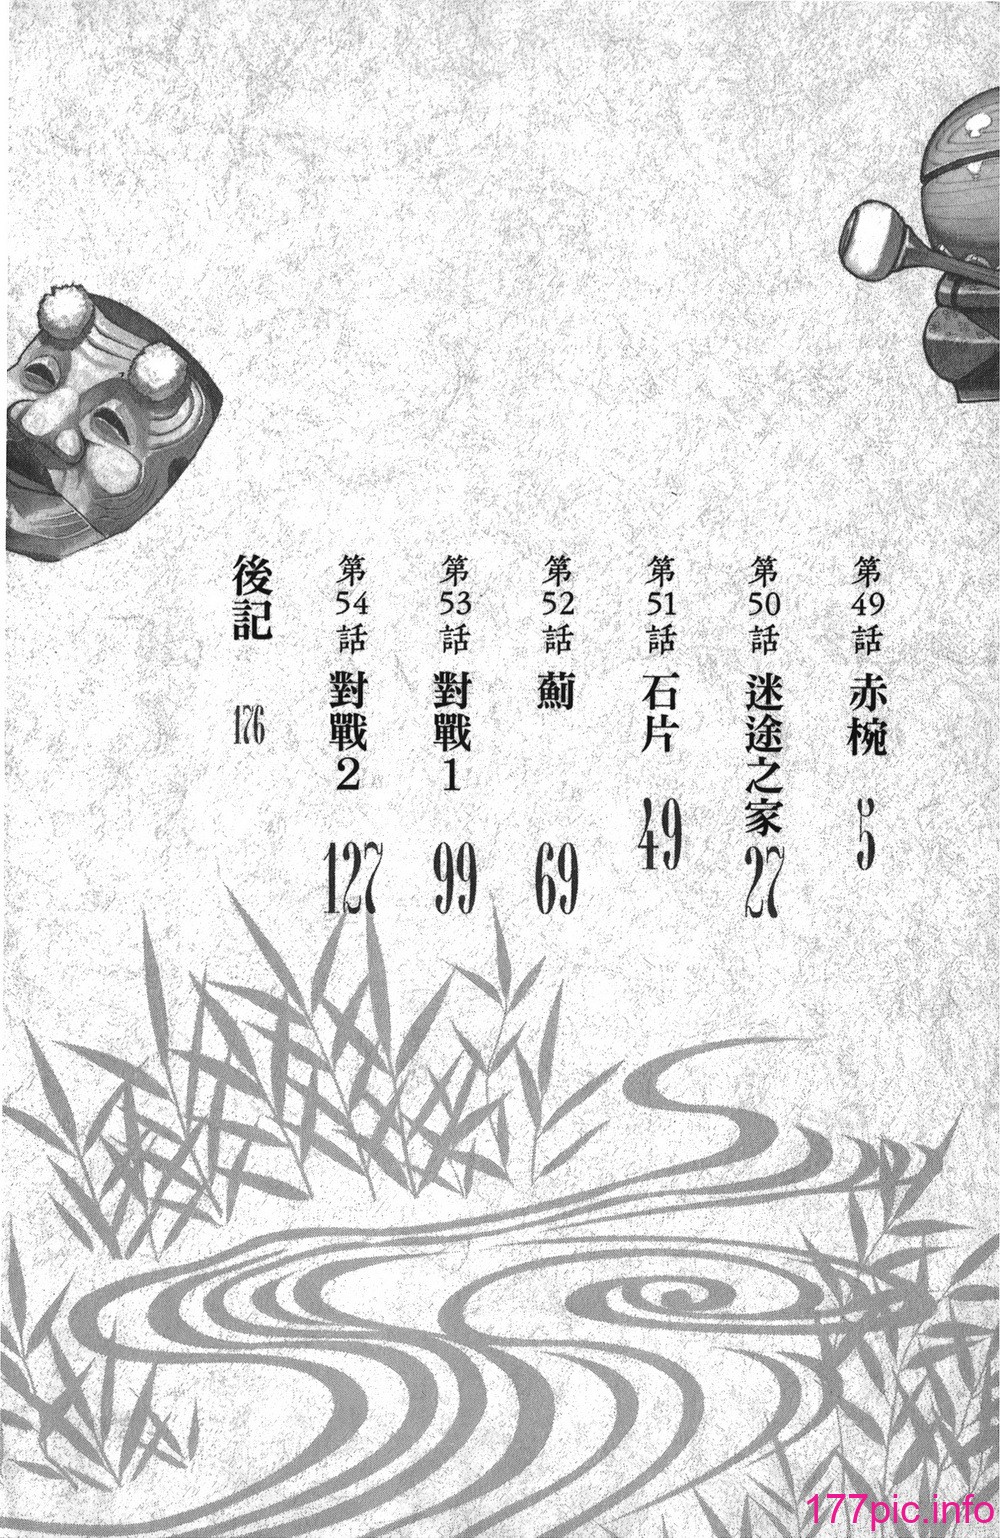 第49話 赤椀 5
第50話 迷途之家 27
第51話 石片 49
第52話 薊 69
第53話 對戰1 99
第54話 對戰2 127
後記 176
177pic.info